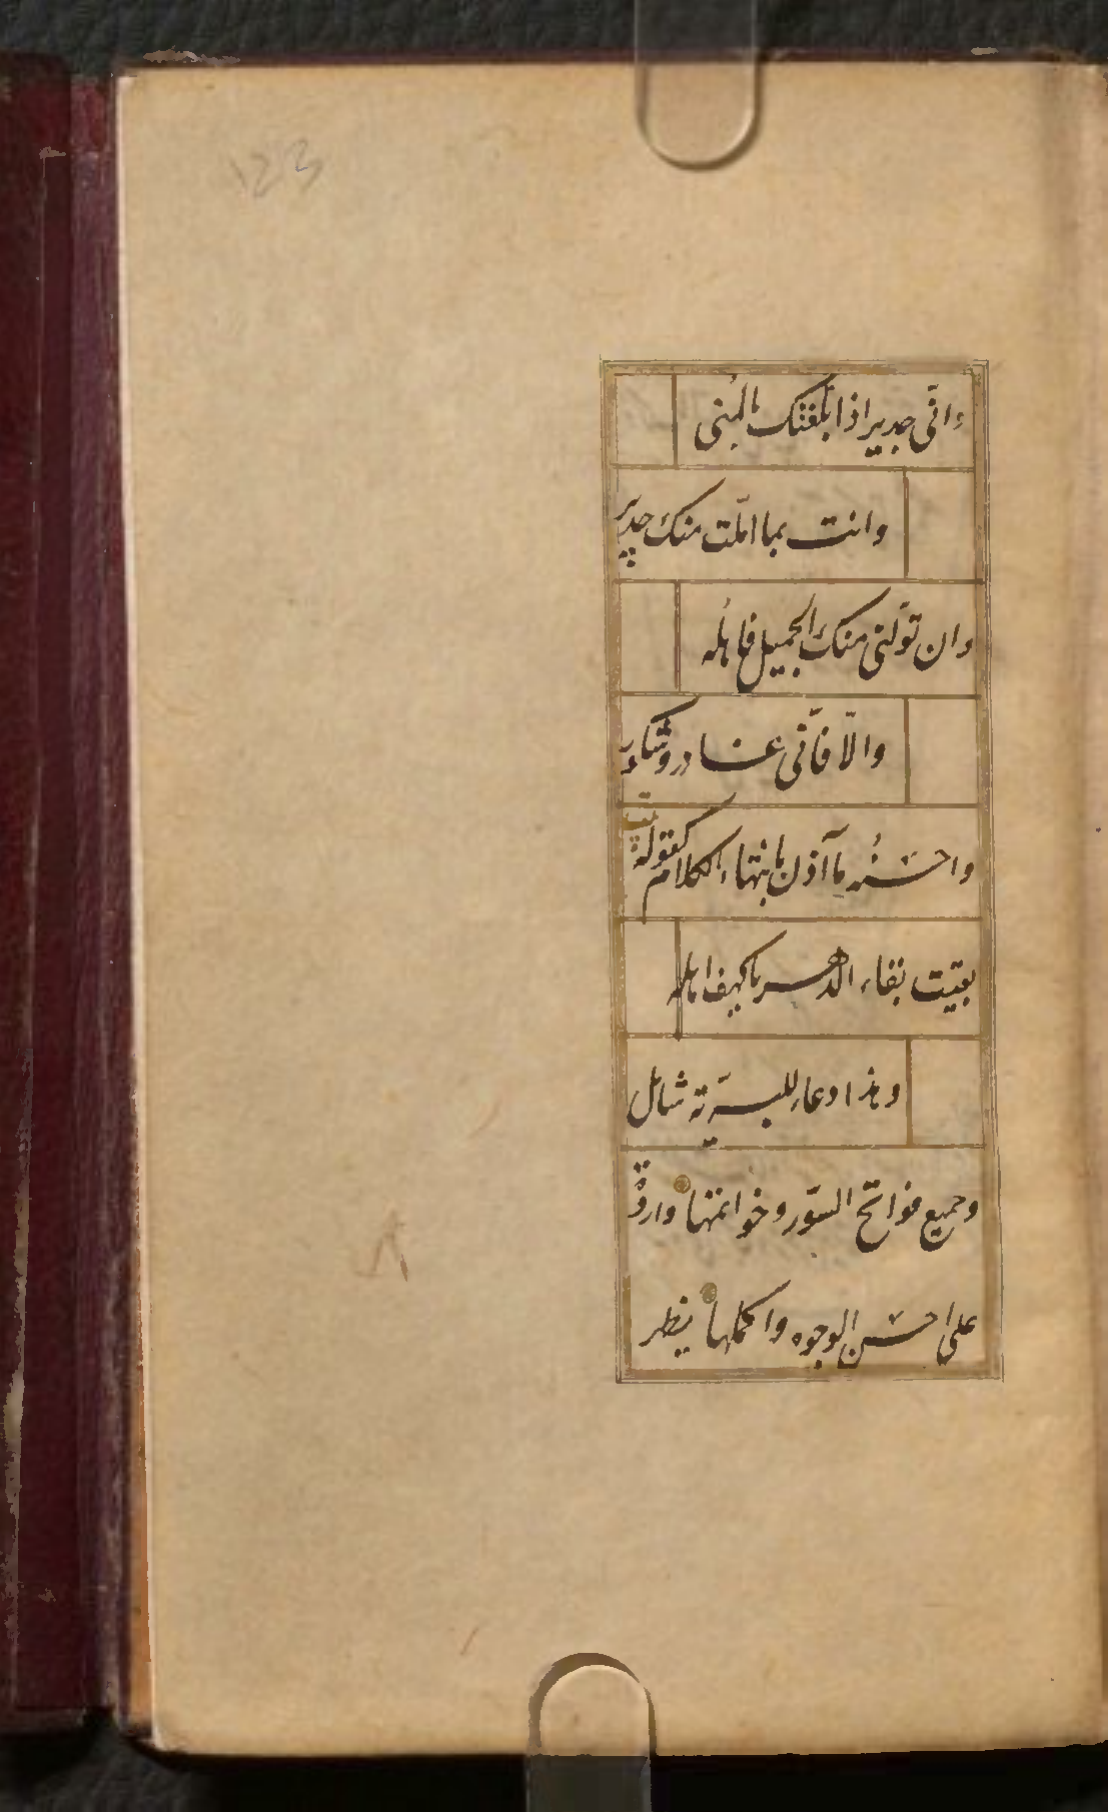 123
وانّى جدير اذا بلغتك بالمُنى
وانت بما امّلت منك جدير
وان تولّنى منك الجميل فاهلُه
والّا فانّى عاذر وشكور
واحسنُه ما آذن بانتهاء الكلام كقوله
بقيّت بقاء الدّهر يا كهف اهله
وهذا دعاء للبريّة شامل
وجميع فواتح السّور وخواتمها واردة
على احسن الوجوه واكملها يظهر